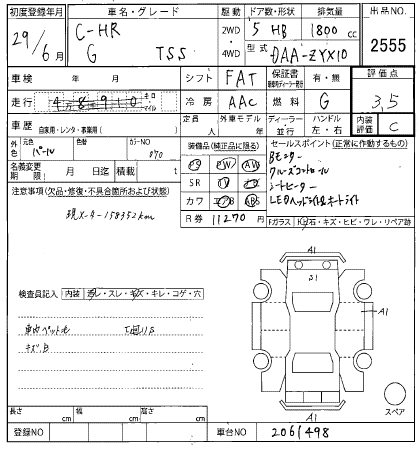 初度登録年月 車名・グレード 駆動 ドア数・形状 排気量 出品NO.
29/6月 C-HR 2WD 5 HB 1800 cc
G TSS 4WD 型式 DAA-ZYX10 2555
車検 年 月 シフト FAT 保証書 有・無 評価点
走行 48910 キロ マイル 冷房 AAC 燃料 G 3.5
車歴 自家用・レンタ・事業用( ) 定員 人 外車モデル 年 ディーラー 並行 ハンドル 左・右 内装評価 C
外色 元色 パール 色替 カラーNO 070 装備品(純正品に限る) セールスポイント(正常に作動するもの)
名義変更期限 月 日迄 積載 t SR カワ ABS
Bモニター
クルーズコントロール
シートヒーター
LEDヘッドライト&オートライト
注意事項(欠品・修復・不具合箇所および状態)
現メーター158352km
R券 11270円 Fガラス 石・キズ・ヒビ・ワレ・リペア跡
検査員記入 内装 スレ・キズ・キレ・コゲ・穴
車内ペット毛
キズ 凹
A1
A1
A1
スペア
長さ cm 幅 cm 高さ cm
登録NO 車台NO 2061498